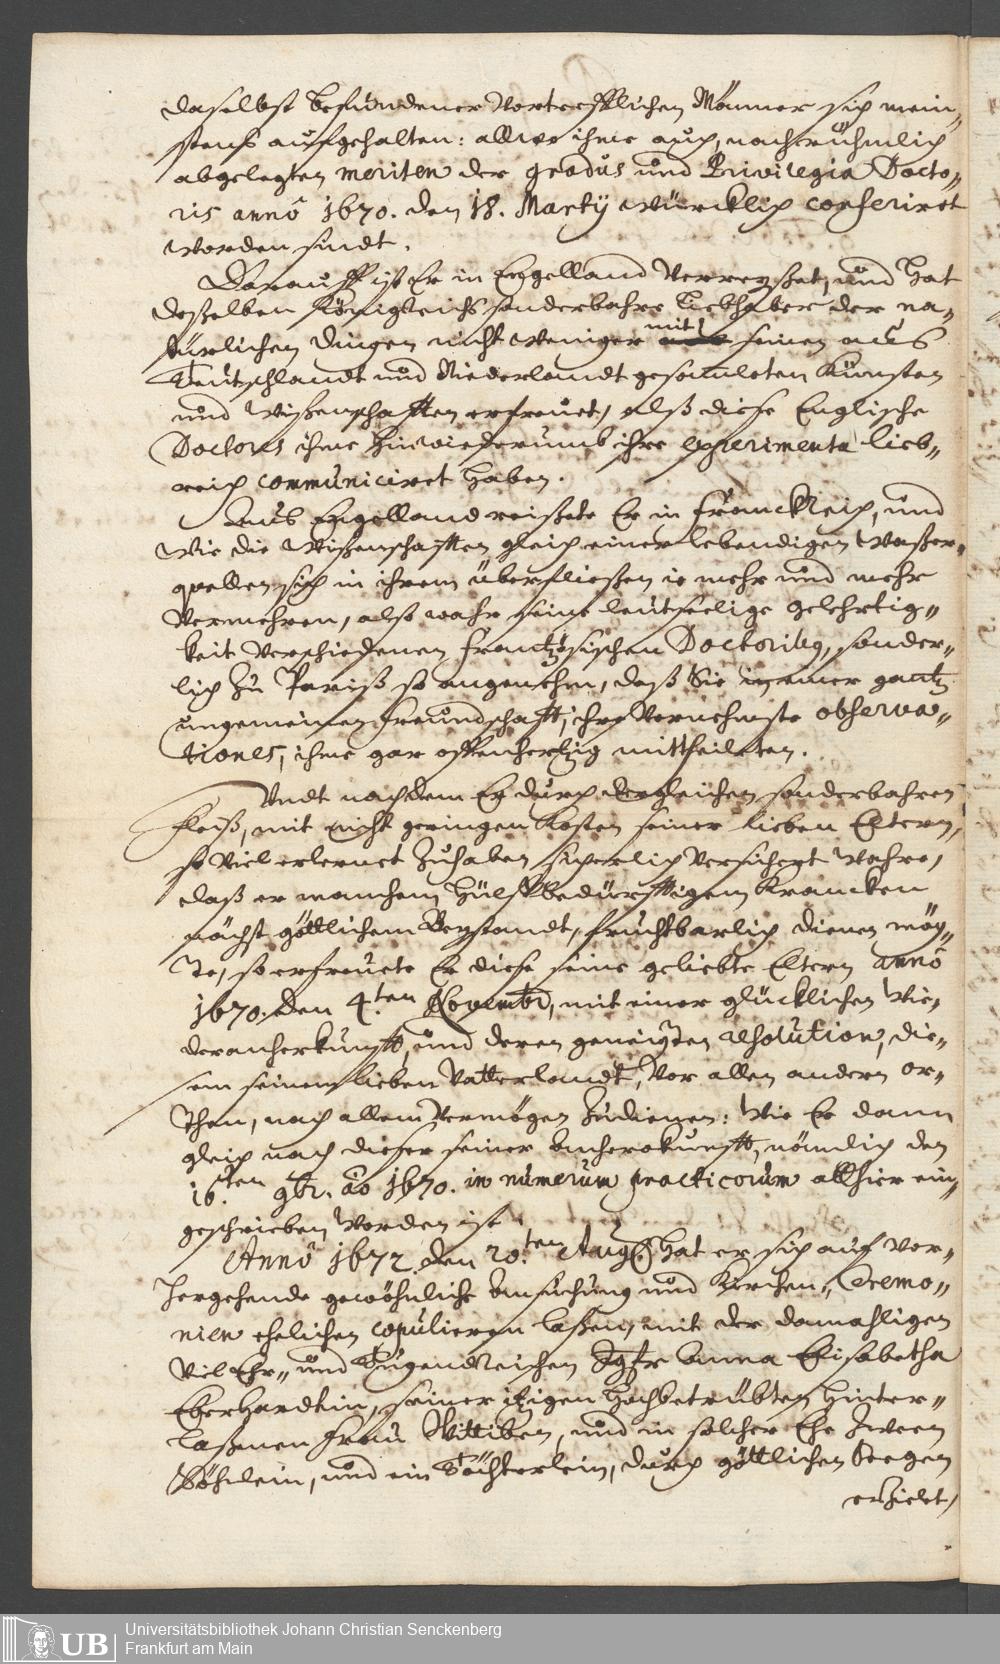 daselbst befundener Vortrefflichen Männer sich mein„
stens auffgehalten: allwo ihme auch, nach rühmlich
abgelegten meriten der gradus und Privilegia Docto„
ris annô 1670. den 18. Martÿ würcklich conferiret
worden sindt.
Darauff ist Er in Engelland Verreyßet, und hat
deßelben Königreichs sonderbahre Liebhaber der na„
türlichen dingen nicht weniger mit seinen aus
Teutschlandt und Niederlandt gesamleten Künsten
und Wißenschafften erfreuet, alß diese Englische
Doctores ihme hinwiederumb ihre experimenta lieb„
reich communiciret haben.
Aus Engelland reißete Er in Franckreich, und
wie die Wißenschafften gleich einer lebendigen Waßer„
quellen sich in ihrem überfließen ie mehr und mehr
Vermehren, also wahr seine leutseelige gelehrtig„
keit Verschiedenen frantzösischen Doctoribus, sonder„
lich zu Pariß so angenehm, daß Sie in einer gantz
ungemeinen freundschafft, ihre Vornehmste observa„
tiones, ihme gar offenhertzig mittheileten.
Undt nachdem Er durch dergleichen sonderbahren
fleiß, mit nicht geringen Kosten seiner lieben Eltern,
so viel erlernet zuhaben, sicherlich versichert wahre,
daß er manchem hülffbedürfftigem Krancken
nächst göttlichem Beystandt, fruchtbarlich dienen möch„
te, so erfreuete Er diese seine geliebte Eltern annô
1670. den 4.ten Novembr, mit einer glücklichen Wie„
deranherkunfft, und deren geneigten resolution, die„
sem seinem lieben Vatterlandt, Vor allen andern or„
then, nach allem Vermögen zudienen: Wie Er dann
gleich nach dieser seiner anherokunfft, nömlich den
16.ten 9br. aô 1670. in numerum practicorum allhier ein„
geschrieben worden ist
Annô 1672. den 20.ten Aug. hat er sich auf vor„
hergehende gewöhnliche ansuchung und Kirchen„ Ceremo„
nien ehelichen copulieren laßen, mit der damahligen
Viel Ehr„ und Tugendreichen Jgfr Anna Elisabetha
Eberhardtin, seiner itzigen hochbetrübten hinter„
laßenen Frau Wittiben, und in solcher Ehe Zween
Söhnlein, und ein Töchterlein, durch göttlichen Seegen
erzielet,
Universitätsbibliothek Johann Christian Senckenberg
UB Frankfurt am Main